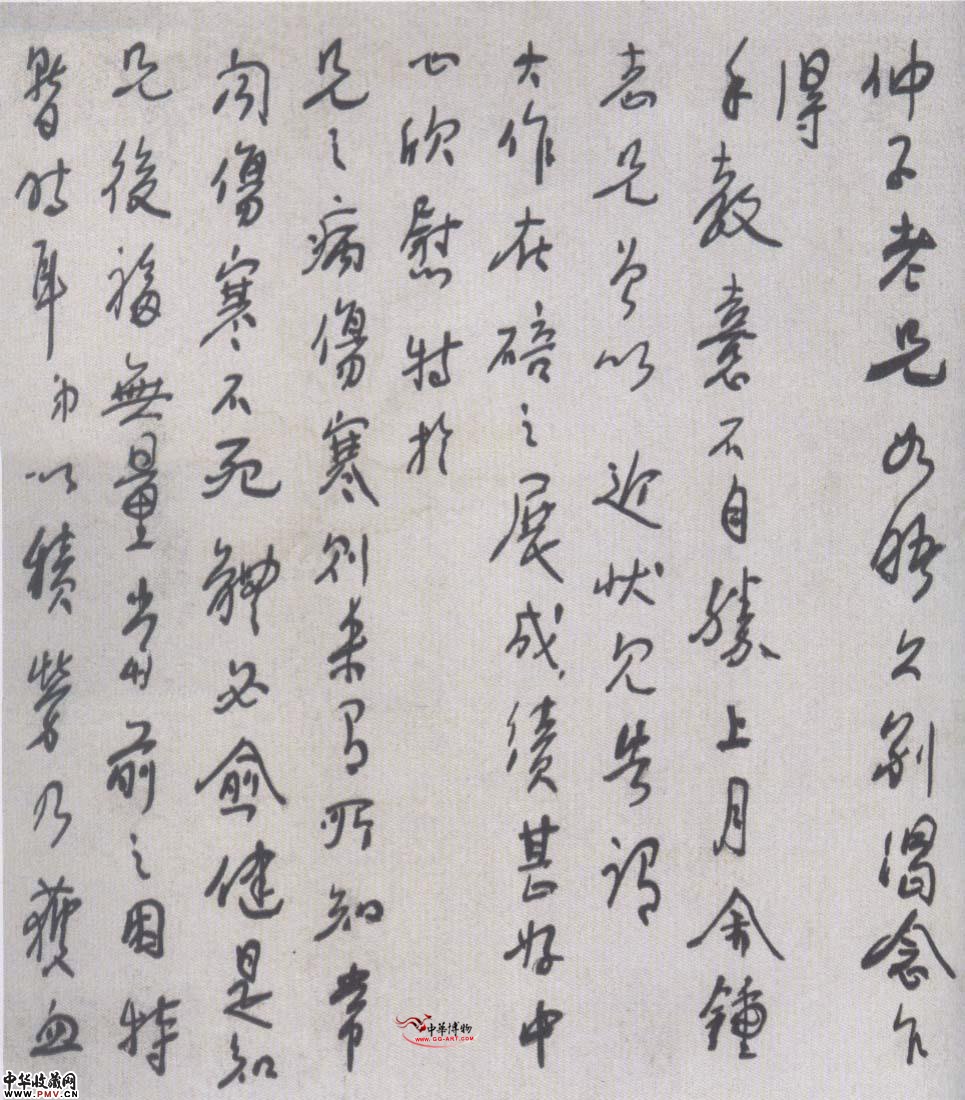 仲子老兄如晤久别渴念乍
得
手教喜不自勝上月余鍾
志兄曾以近状见告謂
大作在碚之展成績甚好中
心欣慰特於
兄之病傷寒則未有所知常
闻傷寒不死體必愈健是知
兄後福無量當前之困特
暫時耳弟以積勞乃獲血
中華博物
WWW.GG-ART.COM
中华收藏网
WWW.PMV.CN